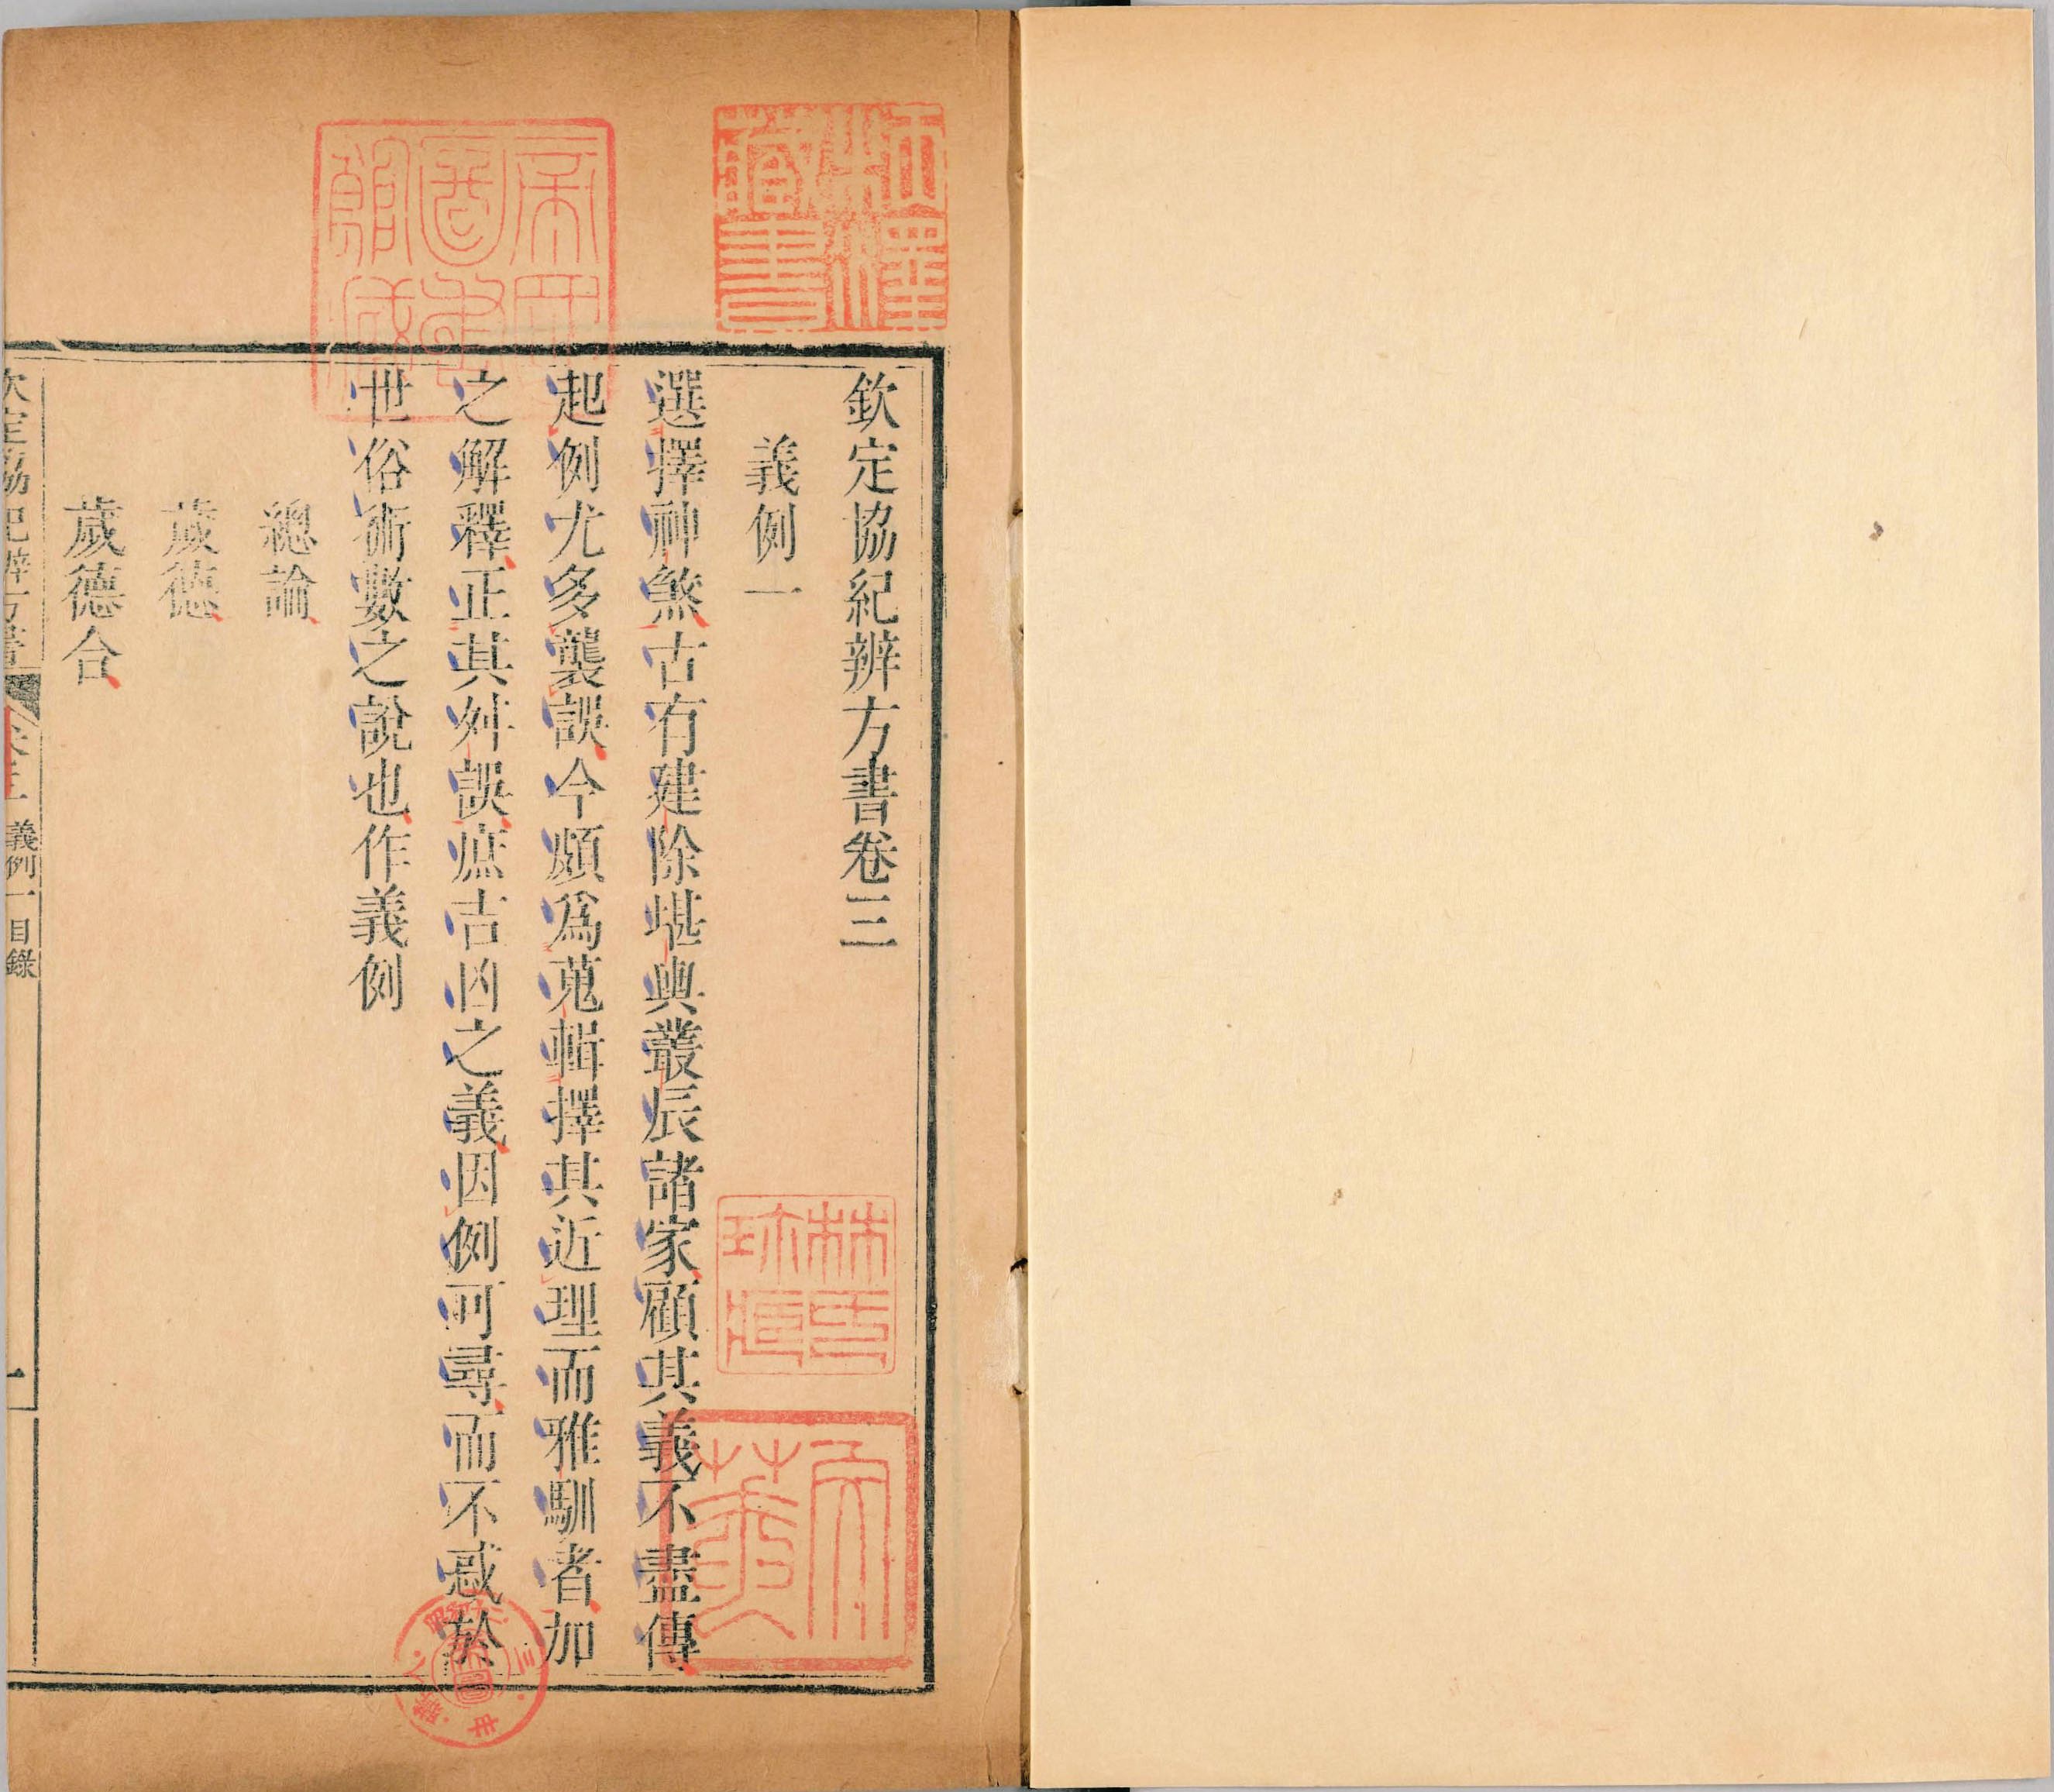 欽定協紀辨方書卷三
義例一
選擇神煞古有建除堪輿叢辰諸家顧其義不盡傳
起例尤多襲誤今頗爲蒐輯擇其近理而雅馴者加
之解釋正其舛誤庶吉凶之義因例可尋而不惑於
世俗術數之說也作義例
總論
歲德
歲德合
欽定協紀辨方書 卷三 義例一 目錄 一
帝國圖書館藏
藏書